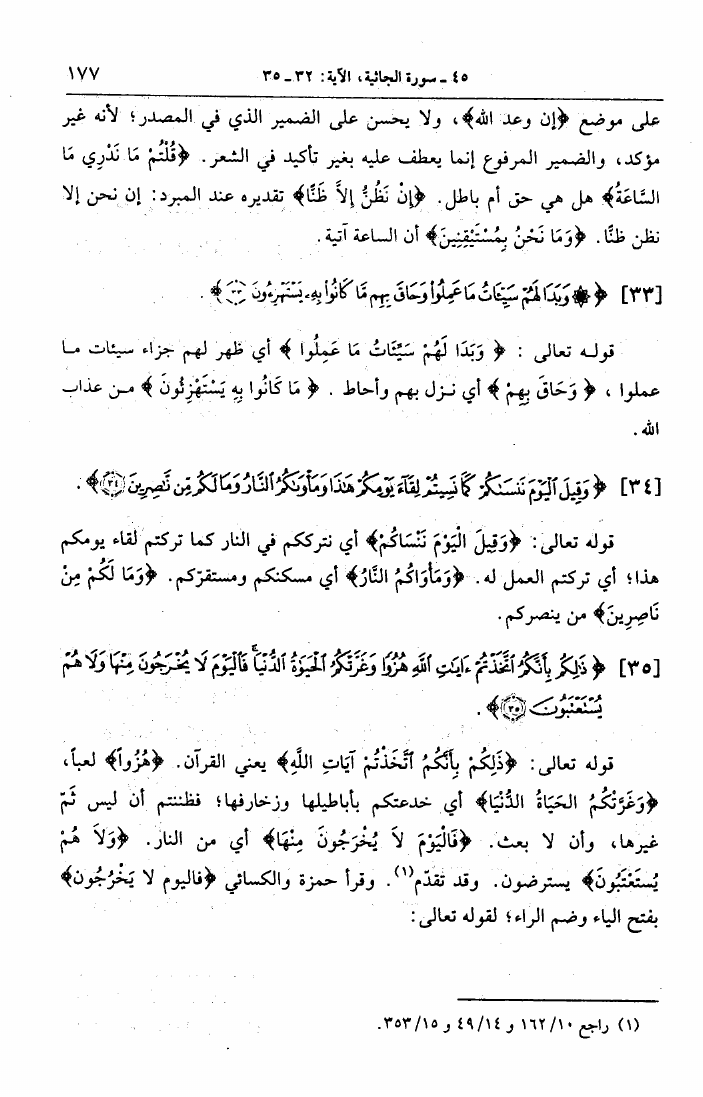 ٤٥ ـ سورة الجاثية، الآية: ٣٢ ـ ٣٥
١٧٧
على موضع ﴿إن وعد الله﴾، ولا يحسن على الضمير الذي في المصدر؛ لأنه غير
مؤكد، والضمير المرفوع إنما يعطف عليه بغير تأكيد في الشعر. ﴿قُلْتُمْ مَا نَدْرِي مَا
السَّاعَةُ﴾ هل هي حق أم باطل. ﴿إِنْ نَظُنُّ إِلاَّ ظَنًّا﴾ تقديره عند المبرد: إن نحن إلا
نظن ظنًّا. ﴿وَمَا نَحْنُ بِمُسْتَيْقِنِينَ﴾ أن الساعة آتية.
[٣٣] ﴿ ۞ وَبَدَا لَهُمْ سَيِّئَاتُ مَا عَمِلُوا۟ وَحَاقَ بِهِم مَّا كَانُوا۟ بِهِۦ يَسْتَهْزِءُونَ ٣٣ ﴾.
قولـه تعالى : ﴿ وَبَدَا لَهُمْ سَيِّئَاتُ مَا عَمِلُوا ﴾ أي ظهر لهم جزاء سيئات مـا
عملوا ، ﴿ وَحَاقَ بِهِمْ ﴾ أي نـزل بهم وأحاط . ﴿ مَا كَانُوا بِهِ يَسْتَهْزِئُونَ ﴾ مـن عذاب
الله .
[٣٤] ﴿ وَقِيلَ ٱلْيَوْمَ نَنسَىٰكُمْ كَمَا نَسِيتُمْ لِقَآءَ يَوْمِكُمْ هَـٰذَا وَمَأْوَىٰكُمُ ٱلنَّارُ وَمَا لَكُم مِّن نَّـٰصِرِينَ ٣٤ ﴾.
قوله تعالى: ﴿وَقِيلَ الْيَوْمَ نَنْسَاكُمْ﴾ أي نترككم في النار كما تركتم لقاء يومكم
هذا؛ أي تركتم العمل له. ﴿وَمَأْوَاكُمُ النَّارُ﴾ أي مسكنكم ومستقرّكم. ﴿وَمَا لَكُمْ مِنْ
نَاصِرِينَ﴾ من ينصركم.
[٣٥] ﴿ ذَٰلِكُم بِأَنَّكُمُ ٱتَّخَذْتُمْ ءَايَـٰتِ ٱللَّهِ هُزُوًا وَغَرَّتْكُمُ ٱلْحَيَوٰةُ ٱلدُّنْيَا ۚ فَٱلْيَوْمَ لَا يُخْرَجُونَ مِنْهَا وَلَا هُمْ
يُسْتَعْتَبُونَ ٣٥ ﴾ .
قوله تعالى: ﴿ذَلِكُمْ بِأَنَّكُمُ اتَّخَذْتُمْ آيَاتِ اللَّهِ﴾ يعني القرآن. ﴿هُزُواً﴾ لعباً،
﴿وَغَرَّتْكُمُ الحَيَاةُ الدُّنْيَا﴾ أي خدعتكم بأباطيلها وزخارفها؛ فظننتم أن ليس ثَمّ
غيرها، وأن لا بعث. ﴿فَالْيَوْمَ لاَ يُخْرَجُونَ مِنْهَا﴾ أي من النار. ﴿وَلاَ هُمْ
يُسْتَعْتَبُونَ﴾ يسترضون. وقد تقدّم(١). وقرأ حمزة والكسائي ﴿فاليوم لا يَخْرُجُون﴾
بفتح الياء وضم الراء؛ لقوله تعالى:
(١) راجع ١٦٢/١٠ و ٤٩/١٤ و ٣٥٣/١٥.